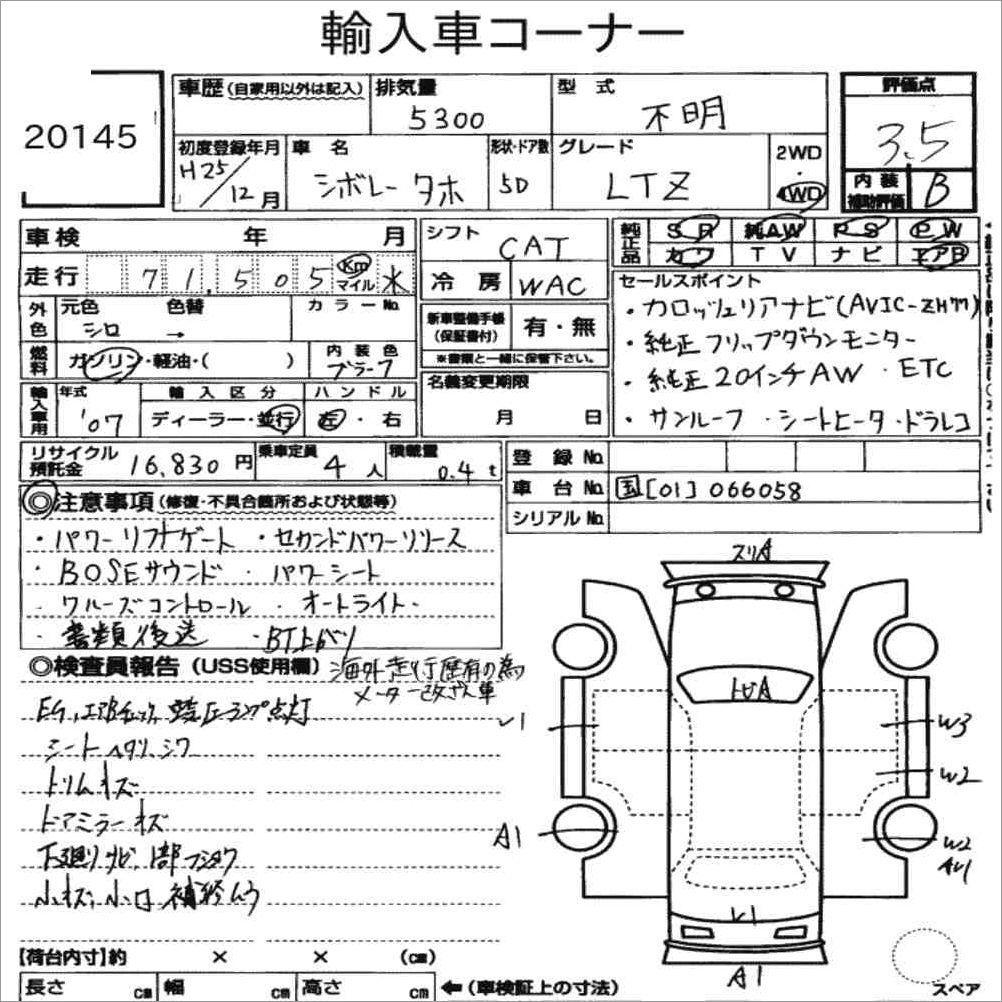 輸入車コーナー
20145
車歴(自家用以外は記入) 排気量 型式 評価点
5300 不明 3.5
初度登録年月 車名 形状・ドア数 グレード 2WD・4WD
H25/12月 シボレー タホ 5D LTZ
内装補助評価 B
車検 年 月 シフト CAT 純正品 SR 純AW PS PW
カワ TV ナビ エアB
走行 71,505 Km マイル 冷房 WAC
セールスポイント
外色 元色 色替 カラーNo.
シロ →
新車整備手帳(保証書付) 有・無
※書類と一緒に保管下さい。
・カロッツェリアナビ(AVIC-ZH77)
・純正フリップダウンモニター
・純正20インチAW・ETC
・サンルーフ・シートヒータ・ドラレコ
燃料 ガソリン・軽油・( ) 内装色
名義変更期限
月 日
輸入車用 年式 輸入区分 ハンドル
'07 ディーラー・並行 左・右
リサイクル預託金 16,830円 乗車定員 4人 積載量 0.4t
登録No.
車台No. 国[01]066058
シリアルNo.
◎注意事項(修復・不具合箇所および状態等)
・パワーリフトゲート ・セカンドパワーリリース
・BOSEサウンド ・パワーシート
・クルーズコントロール ・オートライト・
・書類後送 ・BT上がり
◎検査員報告(USS使用欄) 海外走行歴有の為
メーター改ざん車
シートヘタリ、シワ
トリムキズ
ドアミラーキズ
小キズ、小凹 補修ムラ
A1
W3
W2
A1
W2
A1
【荷台内寸】約 × × (cm)
長さ cm 幅 cm 高さ cm ←(車検証上の寸法)
スペア